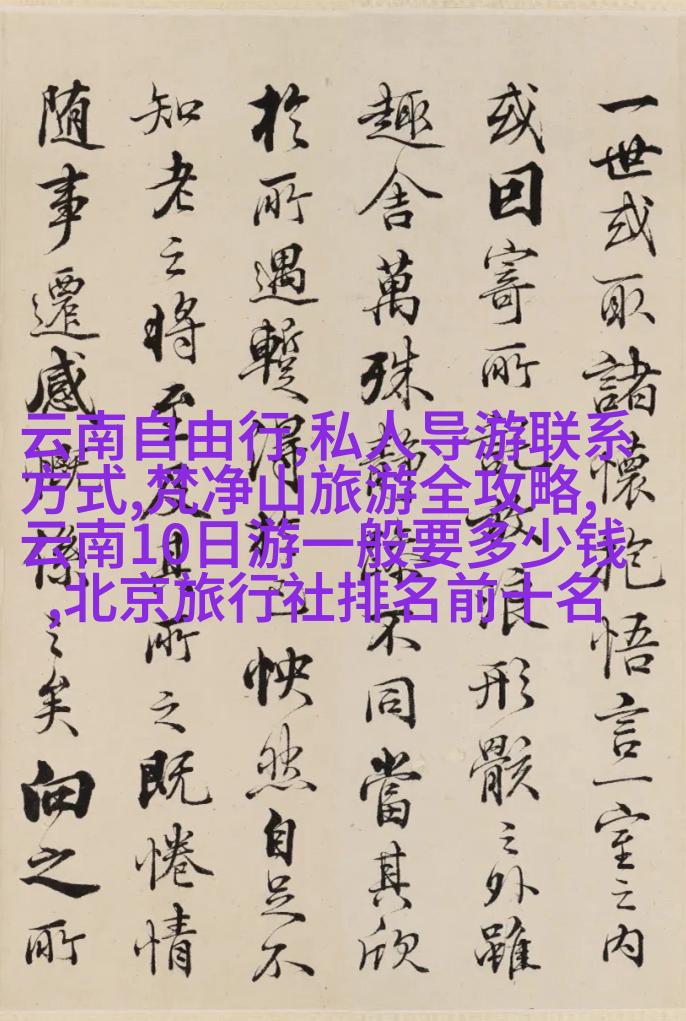 一世或取諸懷抱悟言一室之內
或因寄所託放浪形骸之外雖
趣舍萬殊靜躁不同當其欣
於所遇暫得於己怏然自足不
知老之將至及其所之既惓情
随事遷感慨係之矣向之所
云南自由行,私人导游联系
方式,梵净山旅游全攻略,
云南10日游一般要多少钱
,北京旅行社排名前十名